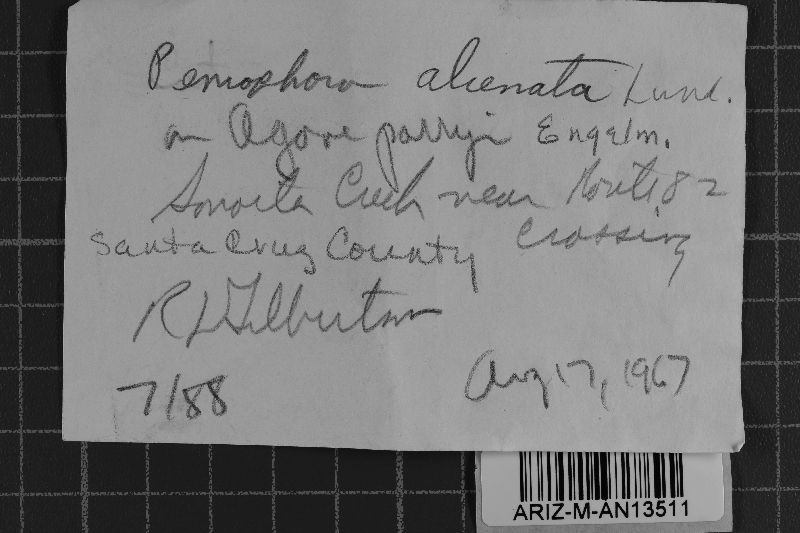 Peniophora alienata Lund.
on Agave parryi Engelm.
Sonoita Creek near Route 82
Santa Cruz County crossing
RLGilbertson
7188
Aug 17, 1967
ARIZ-M-AN13511